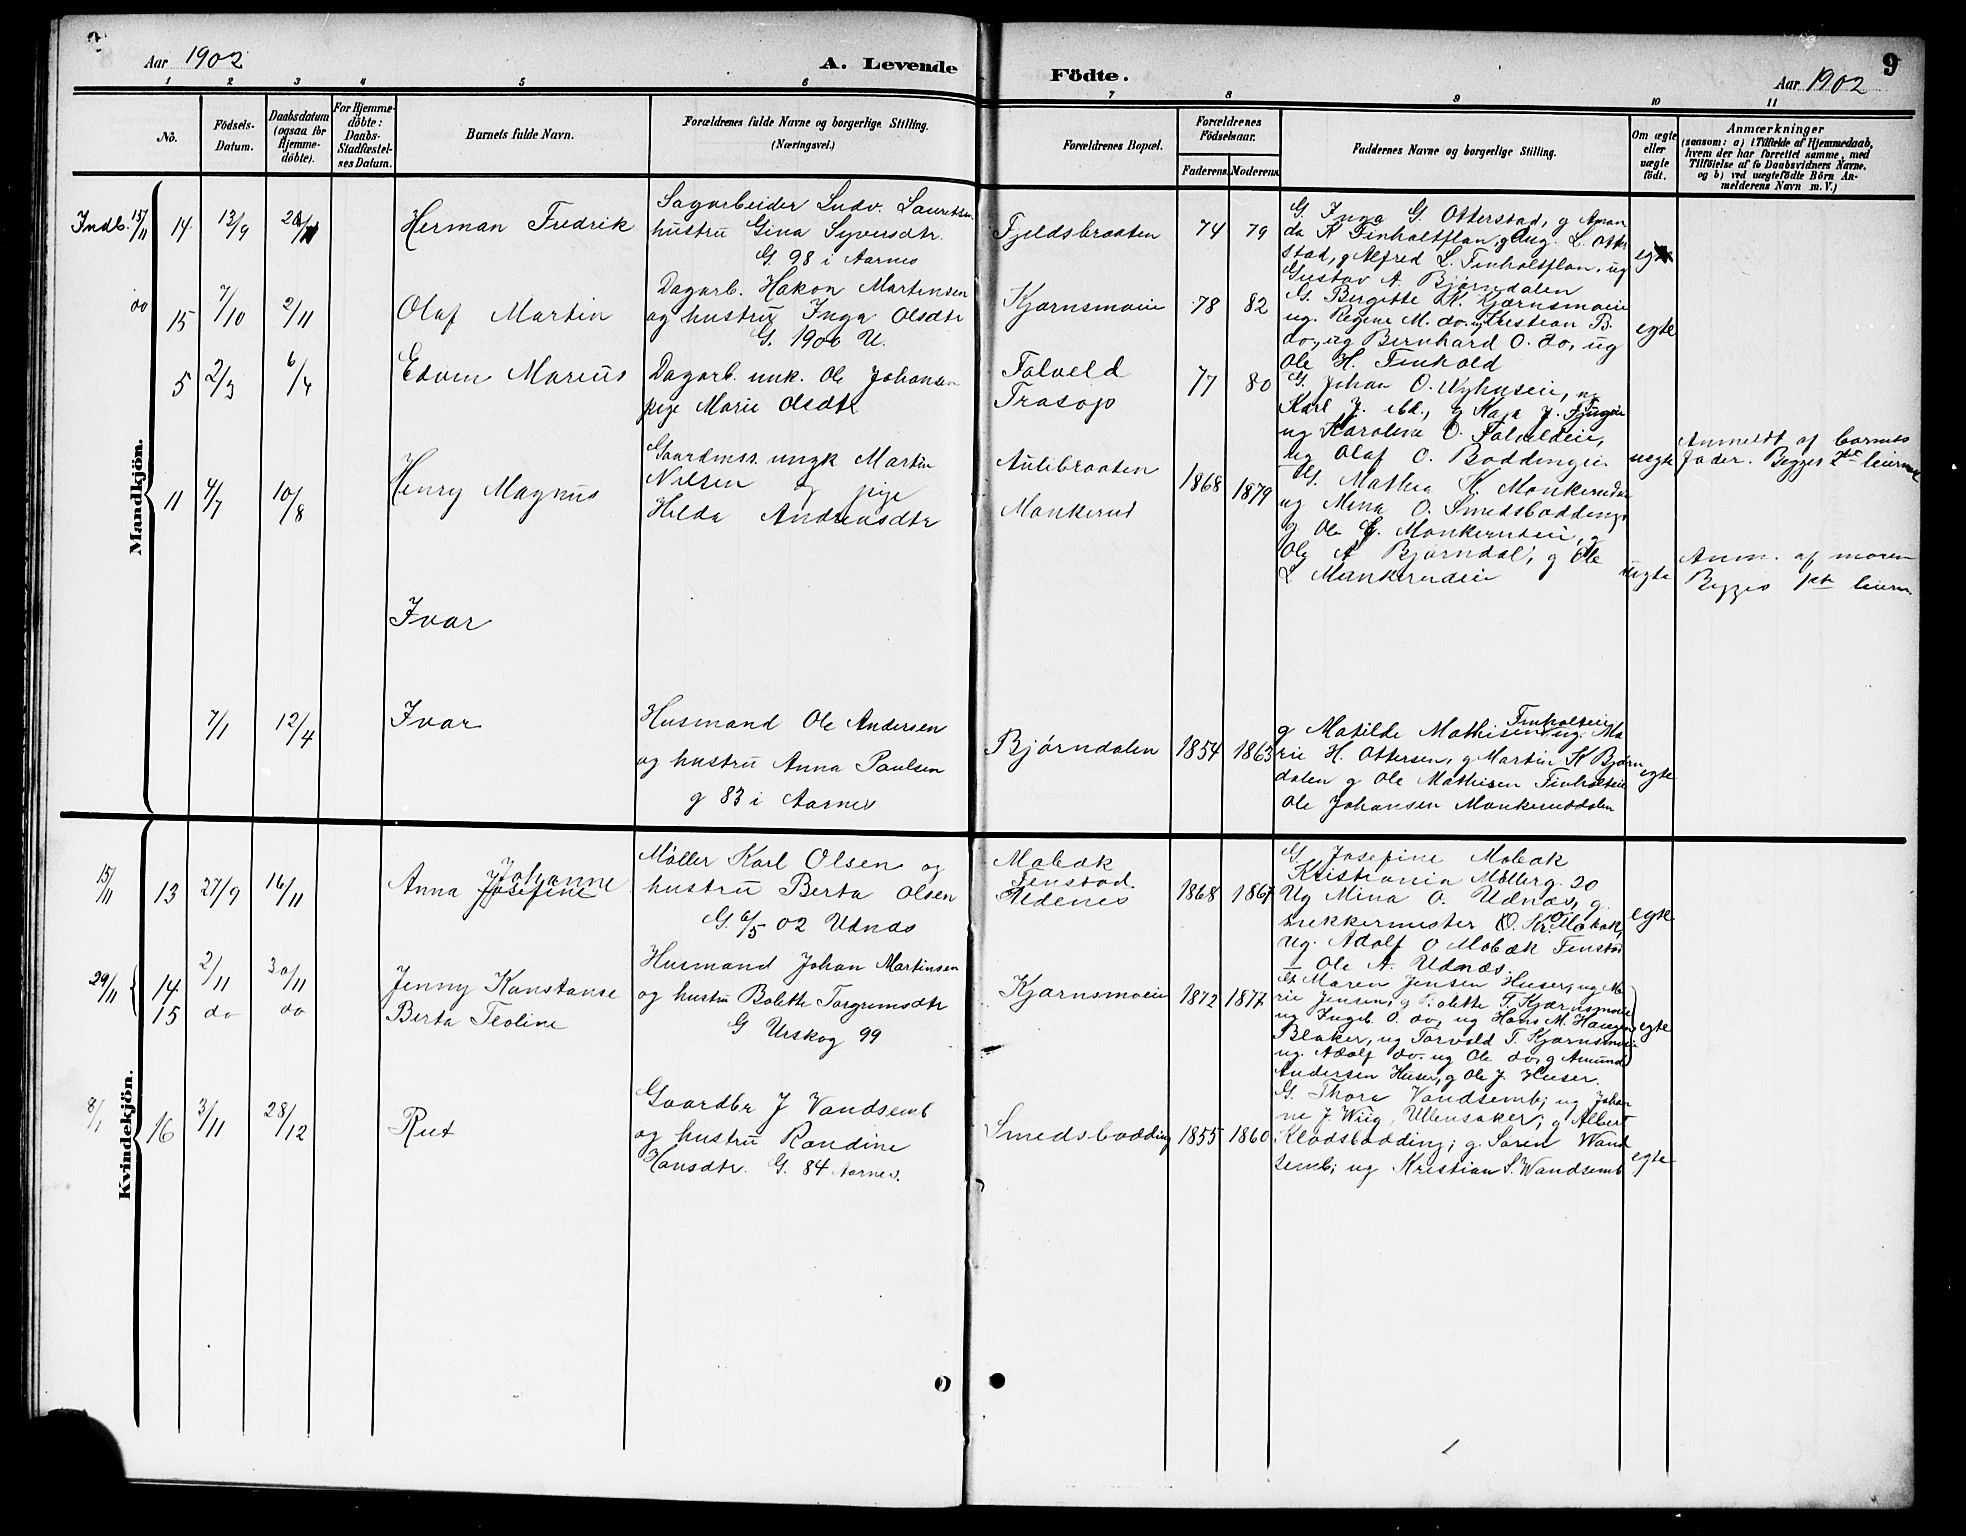 Aar 1902
A. Levende
Födte.
9
Aar 1902
1 2 3 4 5 6 7 8 9 10 11
No.
Födsels-
Datum.
Daabsdatum
(ogsaa for
Hjemme-
döbte).
For Hjemme-
döbte:
Daabs-
Stadfæstel-
ses Datum.
Barnets fulde Navn.
Forældrenes fulde Navne og borgerlige Stilling.
(Næringsvei.)
Forældrenes Bopæl.
Forældrenes
Födselsaar.
Faderens. Moderens.
Faddernes Navne og borgerlige Stilling.
Om ægte
eller
uægte
födt.
Anmærkninger
(saasom: a) i Tilfælde af Hjemmedaab,
hvem der har forrettet samme, med
Tilföielse af to Daabsvidners Navne.
og b) ved uægtefödte Börn An-
melderens Navn m. V.)
Mandkjön.
Indb. 15/11
14
13/9
Herman Fredrik
Sagarbeider Ludv. Lauritsen
hustru Gina Syversdtr.
G. 98 i Aarnes
Fjeldsbraaten
74
79
G. Inga G. Otterstad, g Aman
da K Finholtflan, g Aug. L. Otter
stad, g Alfred L. Finholtflan, ug
Gustav A. Bjørndalen
do
15
7/10
2/11
Olaf Martin
Dagarb. Hakon Martinsen
og hustru Inga Olsdtr
G. 1900 U.
Kjærnsmoeie
78
82
G. Birgitte K. Kjærnsmoeie
ug. Regine M. do. ug Kristian B.
do, ug Bernhard O. do, ug
Ole H. Finhold
egte
5
2/3
6/4
Edvin Marius
Dagarb. unk. Ole Johansen
pige Marie Olsdtr
Falveld
Trasop
77
80
G. Johan O. Nyhuseie, ug
Karl J. ibd., g Maja J.
ug Karoline O. Falveldeie,
ug Olaf O. Boddingeie
uegte
Anmeldt af barnets
fader. Begges 2det leierm
11
4/7
10/8
Henry Magnus
Gaardmss. ungk Martin
Nilsen og pige
Hilda Andreasdtr
Aulibraaten
Mankerud
1868
1879
G. Mathea K. Mankerudeie
ug Mina O. Smedsbodding,
g Ole G. Mankerudeie, g
Ole A Bjørndal, g Ole
L Mankerudeie
uegte
Anm. af moren
Begges 1ste leierm
Ivar
7/1
12/4
Ivar
Husmand Ole Andersen
og hustru Anna Paulsen
g 83 i Aarnes
Bjørndalen
1854
1863
g Matilde Mathisen Finholteie, ug. Ma
rie H. Ottersen, g Martin K Bjørn
dalen g Ole Mathisen Finholteie
Ole Johansen Mankeruddalen
egte
Kvindekjön.
15/11
13
27/9
16/11
Anna Josefine Johanne
Møller Karl Olsen og
hustru Berta Olsen
G. 6/5 02 Udnæs
Mobæk
Fenstad
Udenes
1868
1867
G. Josefine Mobæk
Kristiania Møllerg. 20
Ug Mina O. Udnæs, g.
snekkermester O. Kr. Mobæk,
ug. Adolf O Mobæk Fenstad
Ole A. Udnæs.
egte
29/11
14
2/11
30/11
Jenny Konstanse
15
do
do
Berta Teoline
Husmand Johan Martinsen
og hustru Bolette Torgrimsdtr
G Urskog 99
Kjærnsmoeie
1872
1877
G. Maren Jensen Huser, ug Ma
rie Jensen, g Bolette T. Kjærnsmoeie
ug Ingeb. O. do, ug Hans M. Haugen
Blaker, ug Torvald T. Kjærnsmoeie
ug. Adolf do. ug Ole do, g Amund
Andersen Huser, g Ole J. Huser.
egte
8/1
16
3/11
28/12
Rut
Gaardbr J Vandsemb
og hustru Randine
Hansdtr. G. 84 Aarnes.
Smedsbodding
1855
1860
G. Thora Vandsemb; ug Johan
ne J. Wiig, Ullensaker; g Albert
Klodsbodding; g. Søren Wand
semb; ug Kristian S. Wandsemb
egte